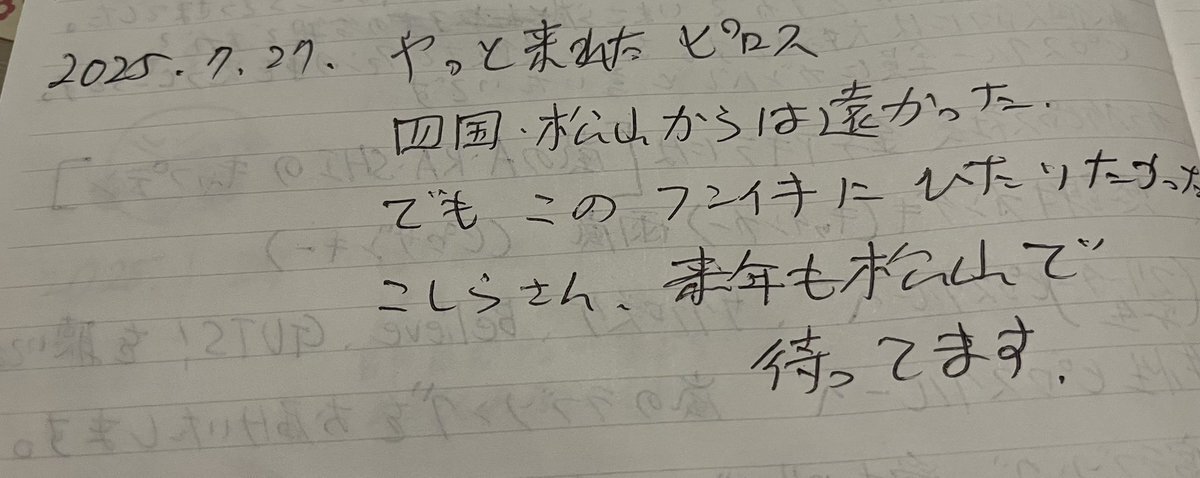 2025.7.27. やっと来れた ピロス
四国・松山からは遠かった.
でも このフンイキに ひたりたかった
こしらさん、来年も松山で
待ってます.